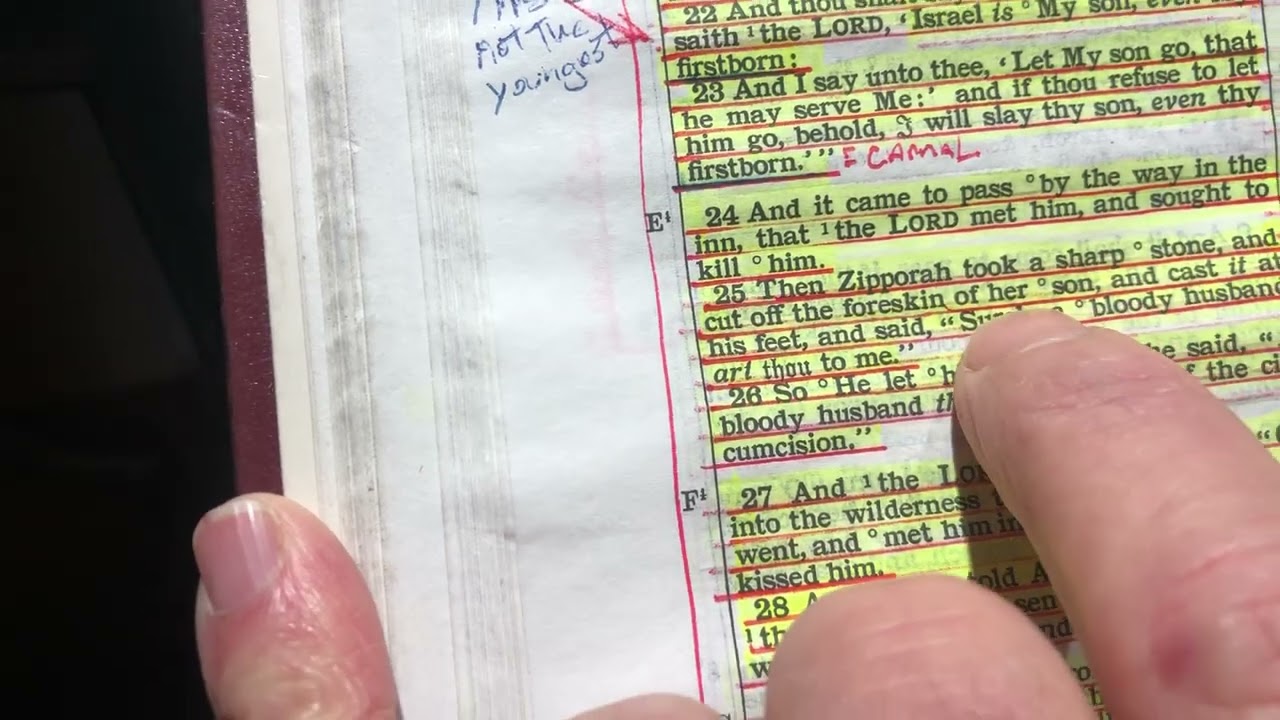 not the
youngest
22 And thou
saith ¹the LORD, ‘Israel is °My son, even
firstborn:
23 And I say unto thee, ‘Let My son go, that
he may serve Me:’ and if thou refuse to let
him go, behold, I will slay thy son, even thy
firstborn.’” = CAMAL
E⁴ 24 And it came to pass °by the way in the
inn, that ¹the LORD met him, and sought to
kill °him.
25 Then Zipporah took a sharp °stone, and
cut off the foreskin of her °son, and cast it at
his feet, and said, “ °bloody husband
art thou to me.”
26 So °He let he said, “
bloody husband the ci
cumcision.”
F⁴ 27 And ¹the
into the wilderness
went, and °met him in
kissed him.
28